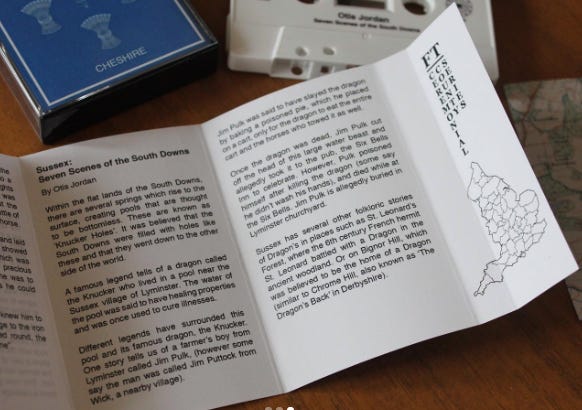 CHESHIRE
Otis Jordan
Seven Scenes of the South Downs
was
horse.
and laid
showed
which
precious
was to
he could
knew him to
to the iron
round, the
Sussex:
Seven Scenes of the South Downs
By Otis Jordan
Within the flat lands of the South Downs,
there are several springs which rise to the
surface, creating pools that are thought
to be bottomless. These are known as
'Knucker Holes'. It was believed that the
South Downs were filled with holes like
these and that they went down to the other
side of the world.
A famous legend tells of a dragon called
the Knucker who lived in a pool near the
Sussex village of Lyminster. The water of
the pool was said to have healing properties
and was once used to cure illnesses.
Different legends have surrounded this
pool and its famous dragon, the Knucker.
One story tells us of a farmer's boy from
Lyminster called Jim Pulk, (however some
say the man was called Jim Puttock from
Wick, a nearby village).
Jim Pulk was said to have slayed the dragon
by baking a poisoned pie, which he placed
on a cart, only for the dragon to eat the entire
cart and the horses who towed it as well.
Once the dragon was dead, Jim Pulk cut
off the head of this large water beast and
allegedly took it to the pub, the Six Bells
Inn to celebrate. However, Pulk poisoned
himself after killing the dragon (some say
he didn't wash his hands), and died while at
the Six Bells. Jim Pulk is allegedly buried in
Lyminster churchyard.
Sussex has several other folkloric stories
of Dragon's in places such as St. Leonard's
Forest, where the 6th century French hermit
St. Leonard battled with a Dragon in the
ancient woodland. Or on Bignor Hill, which
was believed to be the home of a Dragon
(similar to Chrome Hill, also known as 'The
Dragon's Back' in Derbyshire).
FT
CEREMONIAL
COUNTIES
SERIES